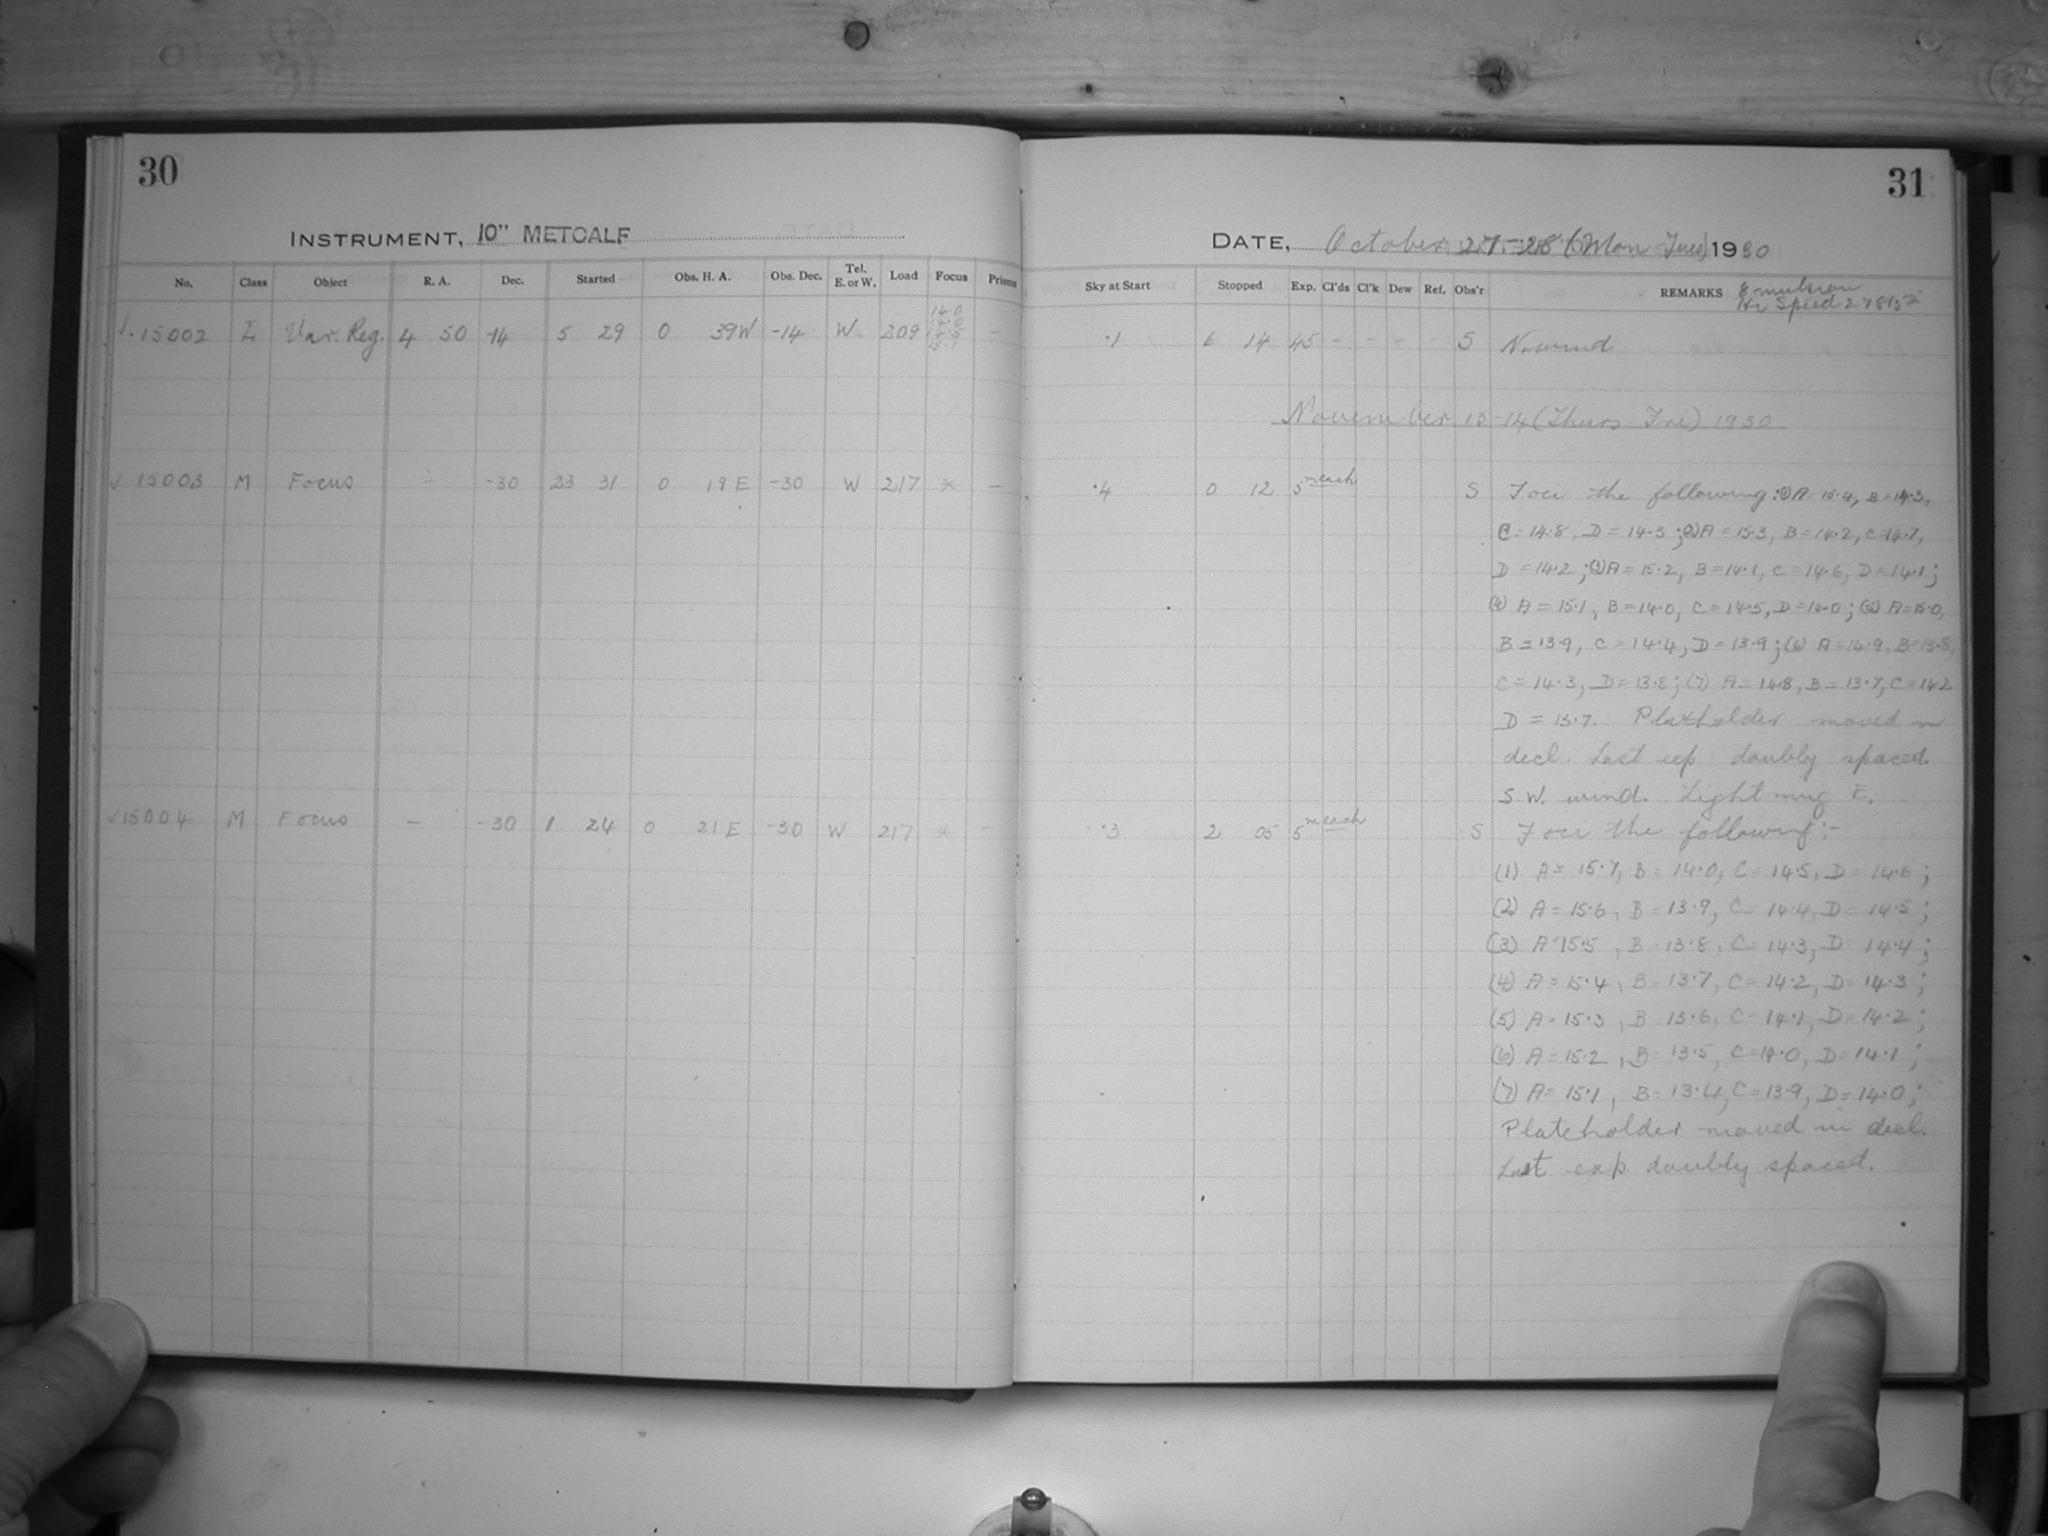 30
INSTRUMENT, 10" METCALF
No. Class Object R. A. Dec. Started Obs. H. A. Obs. Dec. Tel. E. or W. Load Focus Prisms
15002 I Var. Reg. 4 50 -14 5 29 0 39W -14 W. 209 14.0 –
15003 M Focus – -30 23 31 0 19 E -30 W 217 * –
15004 M Focus – -30 1 24 0 21 E -30 W 217 * –
31
DATE, October 27-28 (Mon Tues) 1930
Sky at Start Stopped Exp. Cl'ds Cl'k Dew Ref. Obs'r REMARKS Emulsion
Hi Speed
.1 6 14 45 - - - - S N. wind
November 13-14 (Thurs Fri) 1930
.4 0 12 5 m each S Foci the following: (1) A = 15.4, B = 14.3,
C = 14.8, D = 14.3; (2) A = 15.3, B = 14.2, C = 14.7,
D = 14.2; (3) A = 15.2, B = 14.1, C = 14.6, D = 14.1;
(4) A = 15.1, B = 14.0, C = 14.5, D = 14.0; (5) A = 15.0,
B = 13.9, C = 14.4, D = 13.9; (6) A = 14.9, B = 13.8,
C = 14.3, D = 13.8; (7) A = 14.8, B = 13.7, C = 14.2
D = 13.7. Plateholder moved in
decl. Last exp doubly spaced.
S W. wind. Lightning E.
.3 2 05 5 m each S Foci the following:-
(1) A = 15.7, B = 14.0, C = 14.5, D = 14.6;
(2) A = 15.6, B = 13.9, C = 14.4, D = 14.5;
(3) A = 15.5, B = 13.8, C = 14.3, D = 14.4;
(4) A = 15.4, B = 13.7, C = 14.2, D = 14.3;
(5) A = 15.3, B = 13.6, C = 14.1, D = 14.2;
(6) A = 15.2, B = 13.5, C = 14.0, D = 14.1;
(7) A = 15.1, B = 13.4, C = 13.9, D = 14.0;
Plateholder moved in decl.
Last exp. doubly spaced.